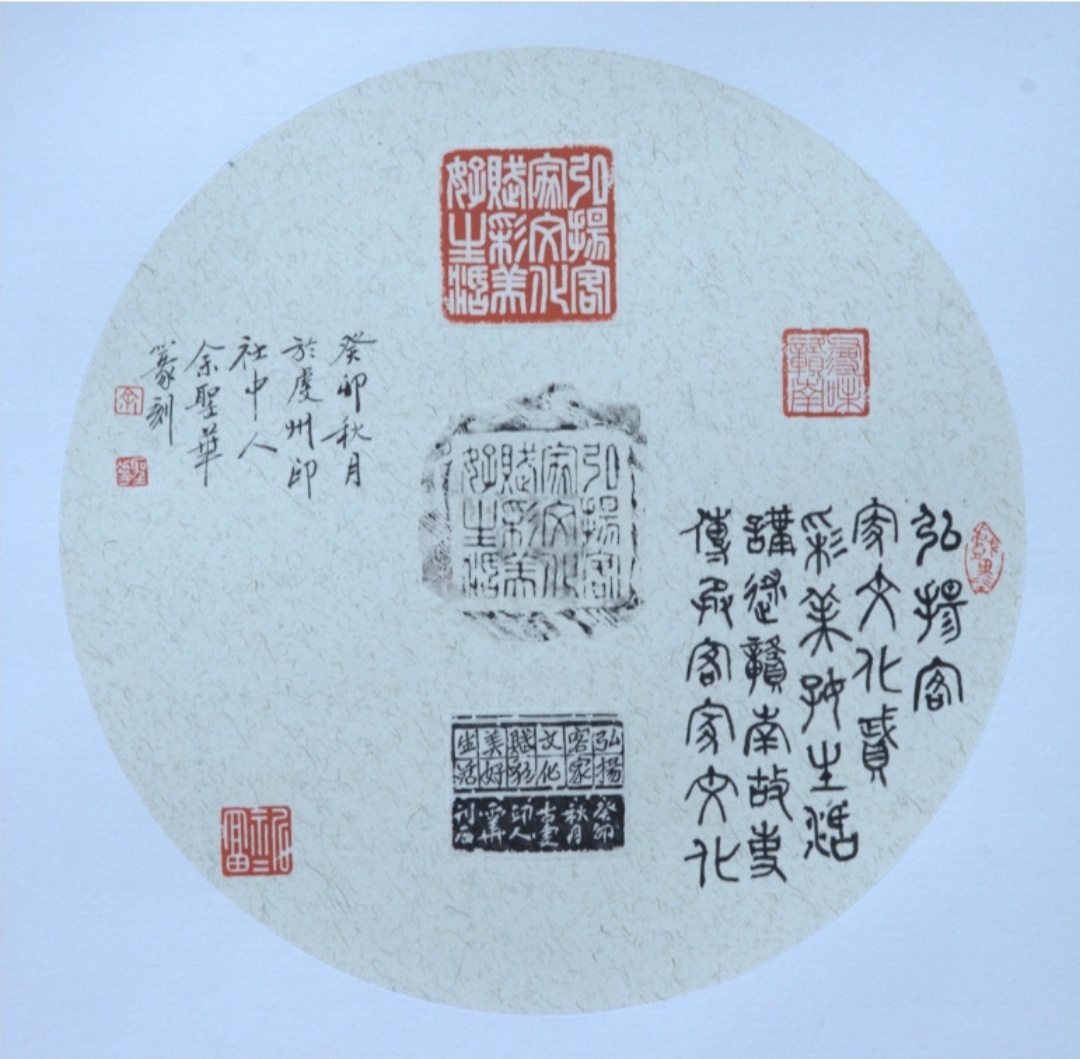 弘揚客
家文化
賦彩美
好生活
味
贛南
弘揚客
家文化賦
彩美好生活
講述贛南故事
傳承客家文化
弘揚客
家文化
賦彩美
好生活
弘揚
客家
文化
賦彩
美好
生活
癸卯
秋月
古虔
印人
聖華
刊石
癸卯秋月
於虔州印
社中人
余聖華
篆刻
余